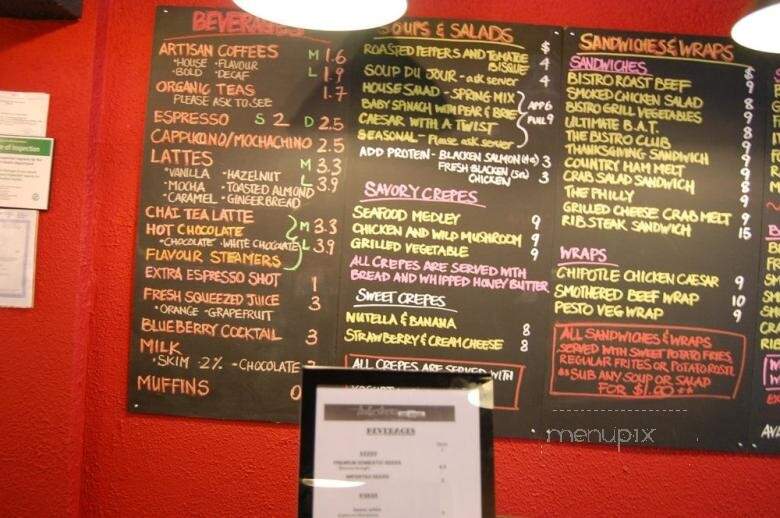 BEVERAGES
ARTISAN COFFEES M 1.6
•HOUSE •FLAVOUR
•BOLD •DECAF L 1.9
ORGANIC TEAS 1.7
PLEASE ASK TO SEE
ESPRESSO S 2 D 2.5
CAPPUCCINO/MOCHACCINO 2.5
LATTES M 3.3
•VANILLA •HAZELNUT L 3.9
•MOCHA •TOASTED ALMOND
•CARAMEL •GINGERBREAD
CHAI TEA LATTE
HOT CHOCOLATE M 3.3
•CHOCOLATE •WHITE CHOCOLATE L 3.9
FLAVOUR STEAMERS
EXTRA ESPRESSO SHOT 1
FRESH SQUEEZED JUICE 3
•ORANGE •GRAPEFRUIT
BLUEBERRY COCKTAIL 3
MILK
•SKIM •2% •CHOCOLATE
MUFFINS
SOUPS & SALADS
$
ROASTED PEPPERS AND TOMATOE 4
BISQUE
SOUP DU JOUR - ask server 4
HOUSE SALAD - SPRING MIX
BABY SPINACH WITH PEAR & BRIE APP 6
CAESAR WITH A TWIST FULL 9
SEASONAL - Please ask server
ADD PROTEIN - BLACKEN SALMON 3
FRESH BLACKEN
CHICKEN 3
SAVORY CREPES
SEAFOOD MEDLEY 9
CHICKEN AND WILD MUSHROOM 9
GRILLED VEGETABLE 9
ALL CREPES ARE SERVED WITH
BREAD AND WHIPPED HONEY BUTTER
SWEET CREPES
NUTELLA & BANANA 8
STRAWBERRY & CREAM CHEESE 8
ALL CREPES ARE SERVED WITH
SANDWICHES & WRAPS
SANDWICHES $
BISTRO ROAST BEEF 9
SMOKED CHICKEN SALAD 8
BISTRO GRILL VEGETABLES 9
ULTIMATE B.A.T. 8
THE BISTRO CLUB 9
THANKSGIVING SANDWICH 9
COUNTRY HAM MELT 9
CRAB SALAD SANDWICH 8
THE PHILLY 9
GRILLED CHEESE CRAB MELT 9
RIB STEAK SANDWICH 15
WRAPS
CHIPOTLE CHICKEN CAESAR 9
SMOTHERED BEEF WRAP 10
PESTO VEG WRAP 9
ALL SANDWICHES & WRAPS
SERVED WITH SWEET POTATO FRIES,
REGULAR FRITES OR POTATO ROSTI
**SUB ANY SOUP OR SALAD
FOR $1.00**
BEVERAGES
menupix